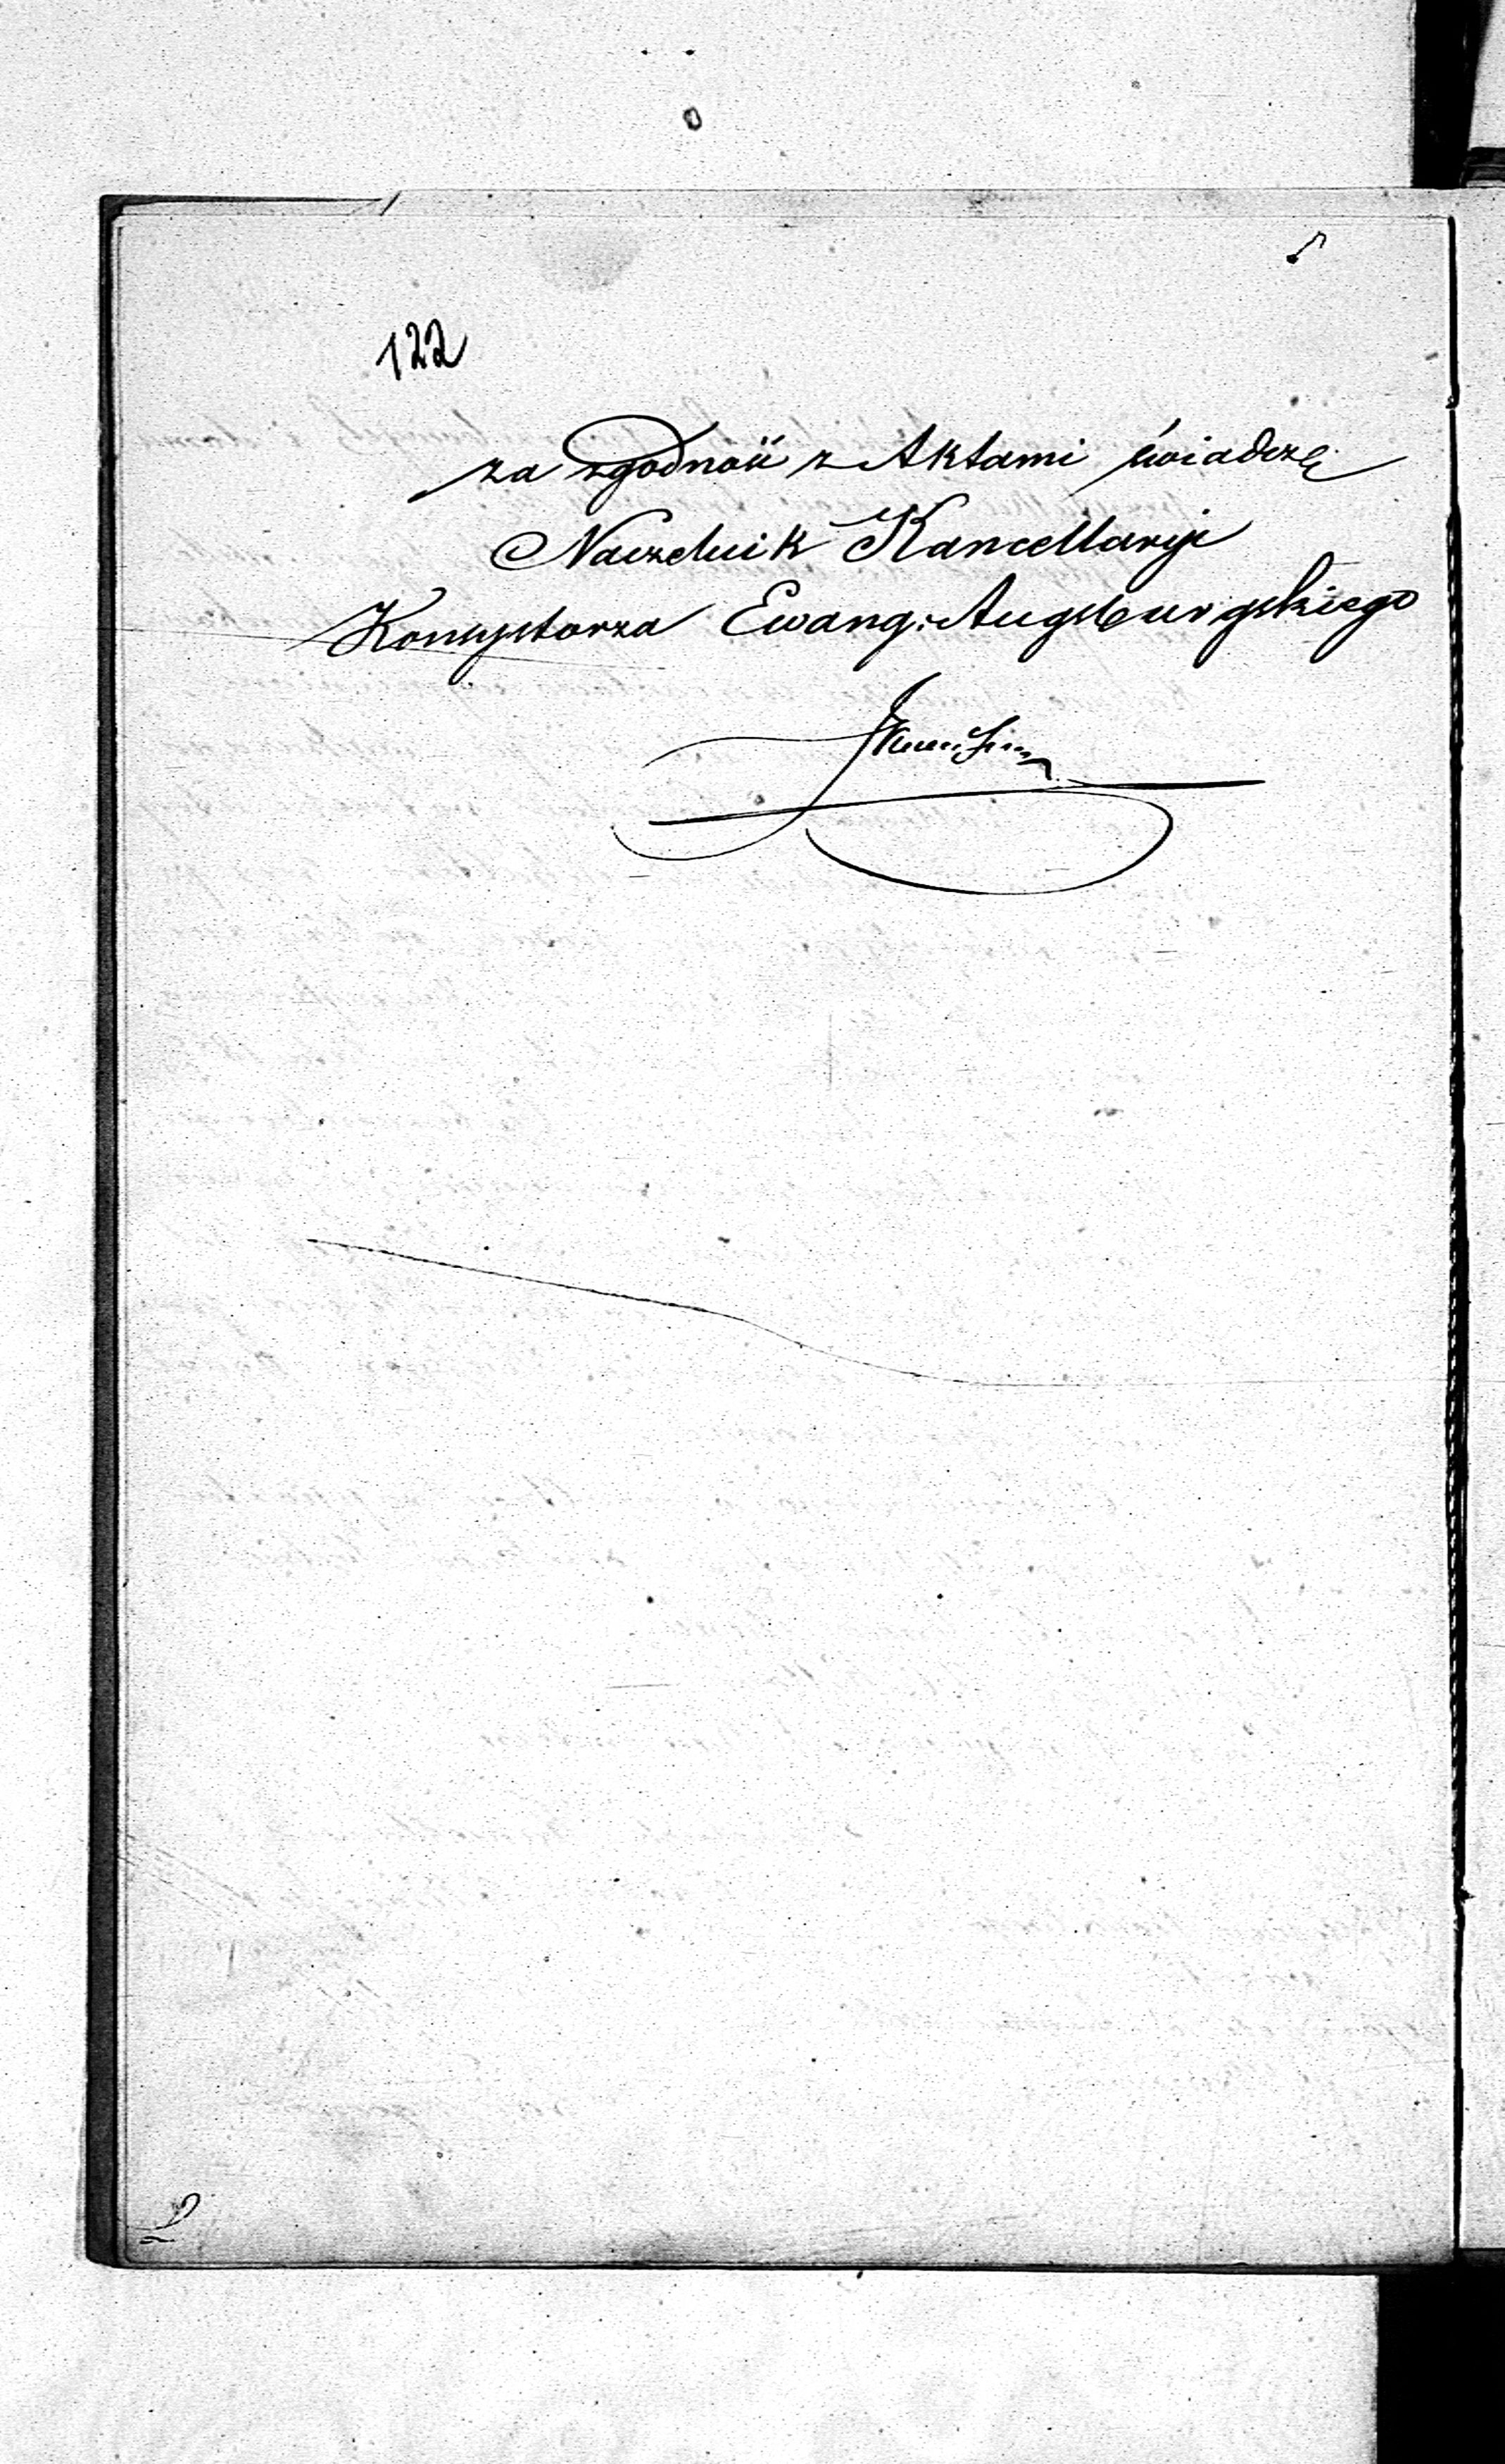 122
za zgodność z Aktami świadczę
Naczelnik Kancellaryi
Konsystorza Ewang: Augsburgskiego